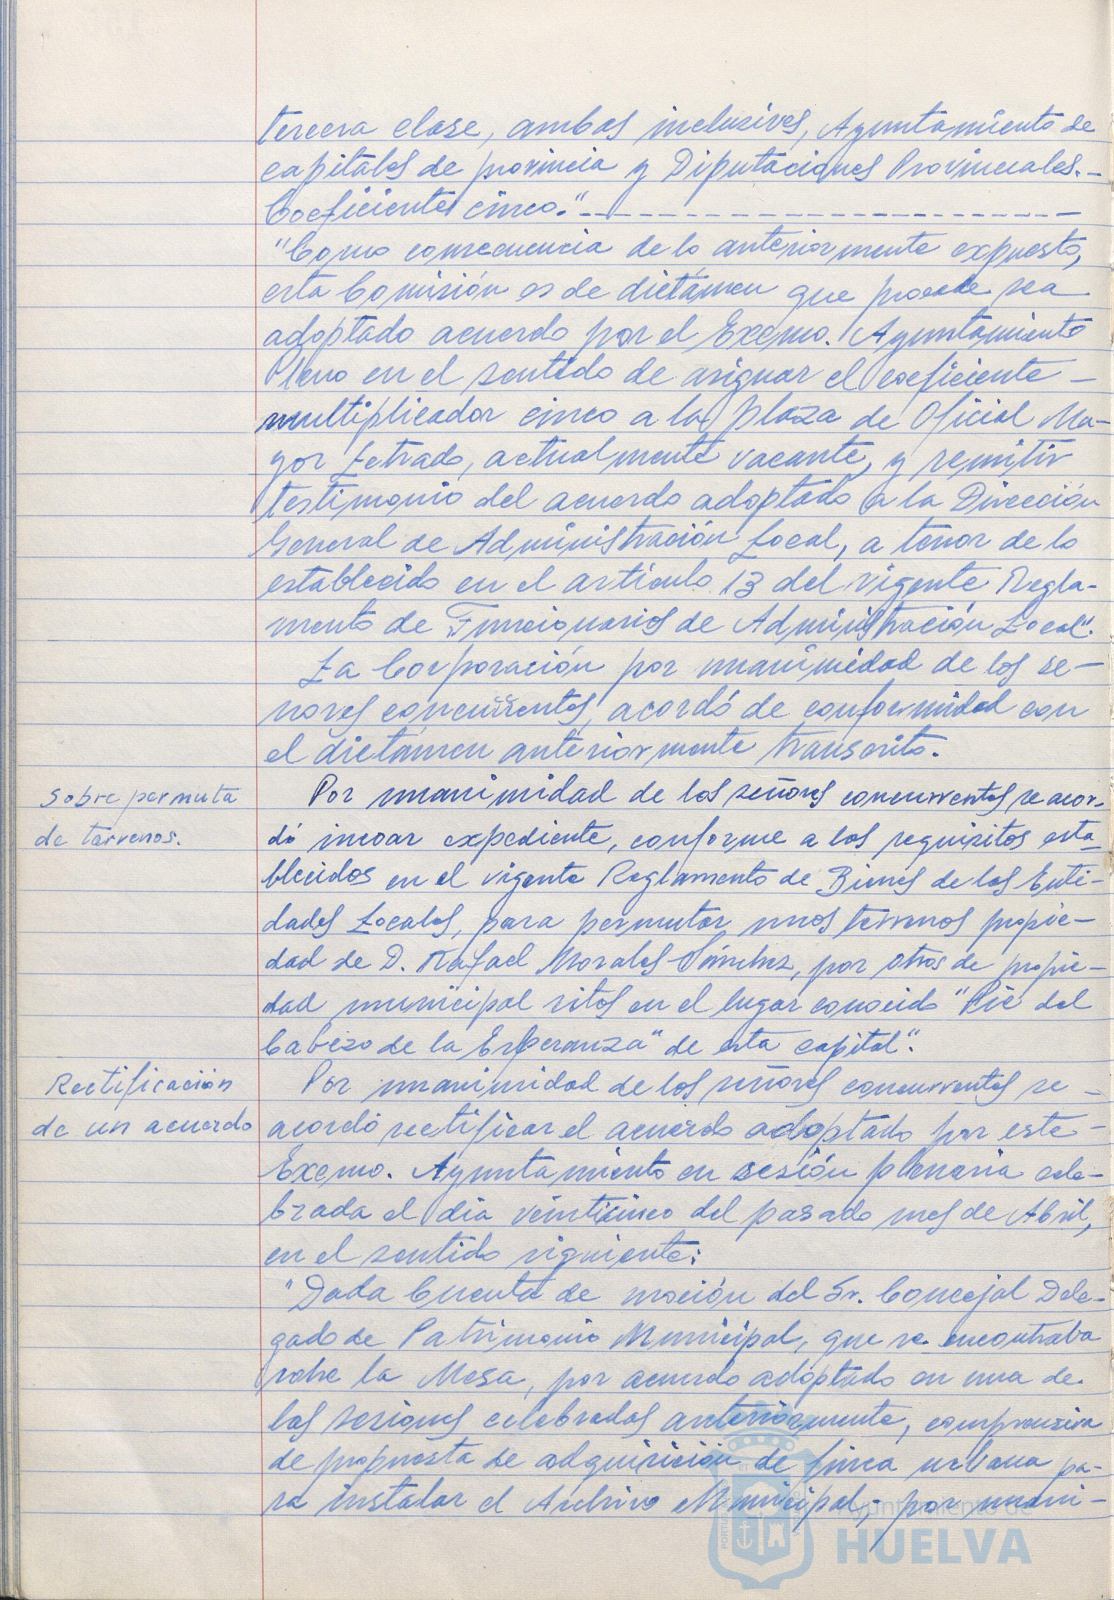 tercera clase, ambos inclusives, Ayuntamiento de
capitales de provincia y Diputaciones Provinciales.-
Coeficientes cinco."-
"Como consecuencia de lo anteriormente expuesto,
esta Comisión es de dictámen que procede sea
adoptado acuerdo por el Excmo. Ayuntamiento
Pleno en el sentido de asignar el coeficiente -
multiplicador cinco a la plaza de Oficial Ma-
yor Letrado, actualmente vacante, y remitir
testimonio del acuerdo adoptado a la Dirección
General de Administración Local, a tenor de lo
establecido en el artículo 13 del vigente Regla-
mento de Funcionarios de Administración Local".
La Corporación por unanimidad de los se-
ñores concurrentes, acordó de conformidad con
el dictámen anteriormente transcrito.
Sobre permuta
de terrenos.
Por unanimidad de los señores concurrentes se acor-
dó incoar expediente, conforme a los requisitos esta-
blecidos en el vigente Reglamento de Bienes de las Enti-
dades Locales, para permutar unos terrenos propie-
dad de D. Rafael Morales Sánchez, por otros de propie-
dad municipal sitos en el lugar conocido "Pie del
Cabezo de la Esperanza" de esta capital".
Rectificación
de un acuerdo
Por unanimidad de los señores concurrentes se -
acordó rectificar el acuerdo adoptado por este -
Excmo. Ayuntamiento en sesión plenaria cele-
brada el día veinticinco del pasado mes de Abril,
en el sentido siguiente:
"Dada Cuenta de moción del Sr. Concejal Dele-
gado de Patrimonio Municipal, que se encontraba
sobre la Mesa, por acuerdo adoptado en una de
las sesiones celebradas anteriormente, comprensiva
de propuesta de adquisición de finca urbana pa-
ra instalar el Archivo Municipal; por unani-
Ayuntamiento de
HUELVA